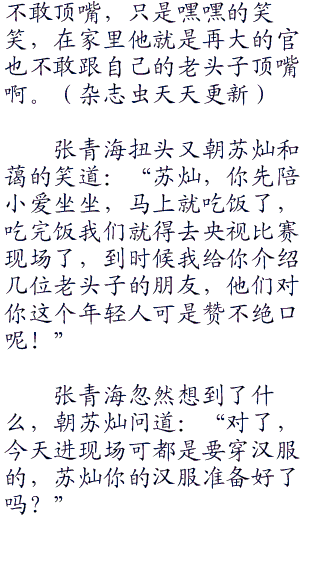 不敢顶嘴，只是嘿嘿的笑
笑，在家里他就是再大的官
也不敢跟自己的老头子顶嘴
啊。（杂志虫天天更新）
张青海扭头又朝苏灿和
蔼的笑道：“苏灿，你先陪
小爱坐坐，马上就吃饭了，
吃完饭我们就得去央视比赛
现场了，到时候我给你介绍
几位老头子的朋友，他们对
你这个年轻人可是赞不绝口
呢！”
张青海忽然想到了什
么，朝苏灿问道：“对了，
今天进现场可都是要穿汉服
的，苏灿你的汉服准备好了
吗？”